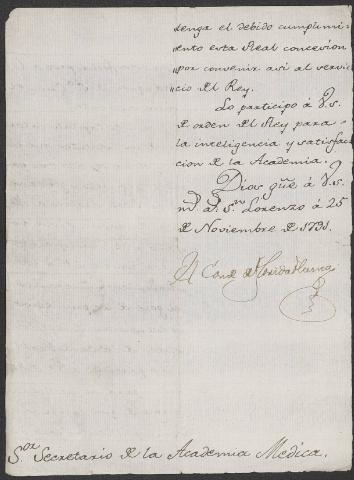 tenga el debido cumplimi-
ento esta Real concesion
por convenir asi al servi-
cio del Rey.
Lo participo á V.S.
de orden del Rey para
la inteligencia y satisfac-
cion de la Academia.
Dios güe á V.S.
m.s a.s S.n Lorenzo á 25
de Noviembre de 1791.
El Conde de Floridablanca
S.or Secretario de la Academia Medica.